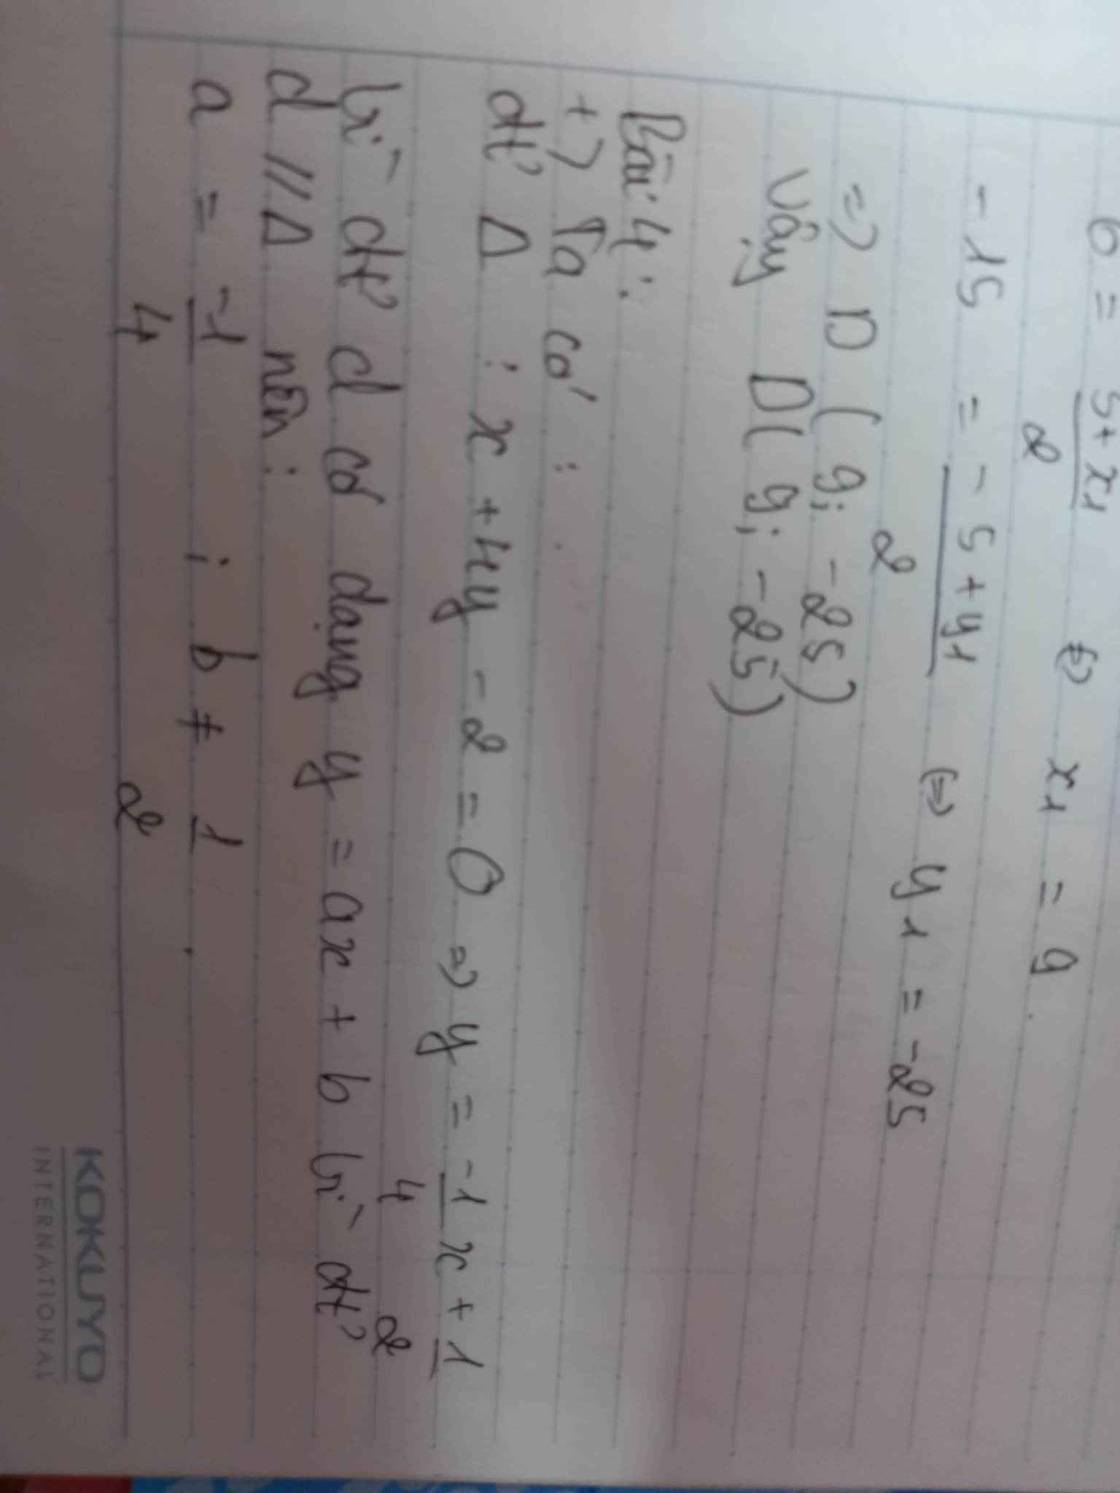 6 = \frac{5 + x_1}{2} ⇔ x_1 = 9
-15 = \frac{-5 + y_1}{2} ⇔ y_1 = -25
=> D ( 9; -25)
Vậy D( 9; -25)
Bài 4:
+) Ta có :
đt' Δ : x + 4y - 2 = 0 => y = \frac{-1}{4} x + \frac{1}{2}
Vì đt' d có dạng y = ax + b Vì đt'
d // Δ nên :
a = \frac{-1}{4} ; b ≠ \frac{1}{2} .
KOKUYO
INTERNATIONAL